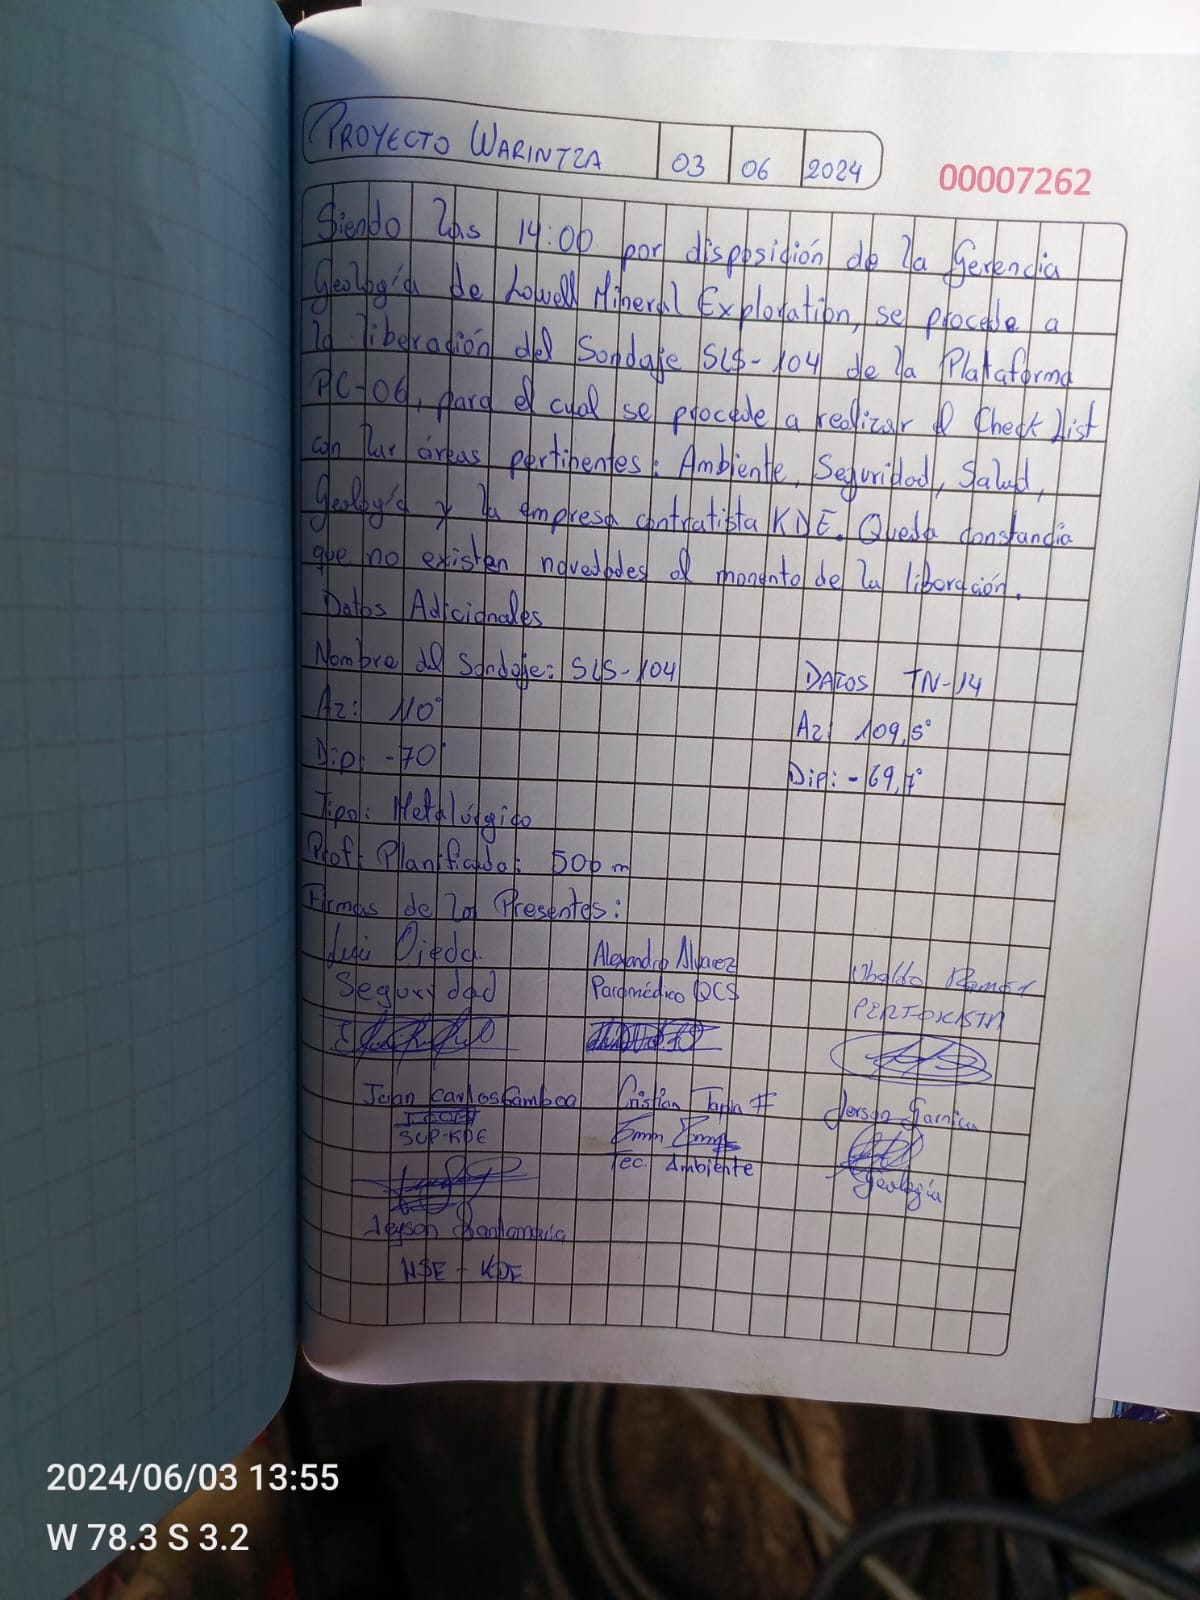 PROYECTO WARINTZA 03 06 2024
00007262
Siendo las 14:00 por disposición de la Gerencia
Geología de Lowell Mineral Exploration, se procede a
la liberación del Sondaje SLS-104 de la Plataforma
PC-06, para el cual se procede a realizar el Check List
con las áreas pertinentes: Ambiente, Seguridad, Salud,
Geología y la empresa contratista KDE. Queda constancia
que no existen novedades al momento de la liberación.
Datos Adicionales
Nombre del Sondaje: SLS-104 DATOS TN-14
Az: 110° Az: 109,5°
Dip: -70° Dip: -69,7°
Tipo: Metalúrgico
Prof: Planificada: 500 m
Firmas de los Presentes:
Luis Ojeda. Alexandro Alvarez Ubaldo
Seguridad Paramédico QCS
John Carlos Gamboa Cristian Tapia F Jerson Garnica
SUP-KDE
Tec. Ambiente Geología
Jeyson Santamaría
HSE - KDE
2024/06/03 13:55
W 78.3 S 3.2